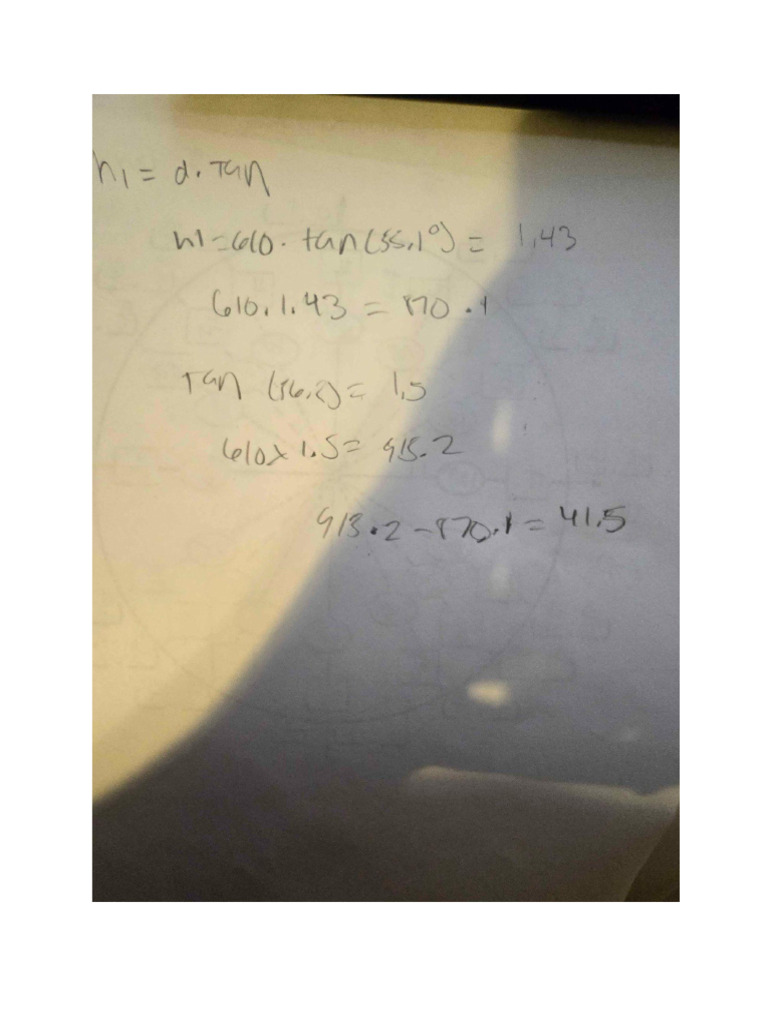 h1 = d. Tan
h1 = 610. tan(55.1°) = 1.43
610.1.43 = 870.1
Tan (56.2) = 1.5
610 x 1.5 = 915.2
913.2 - 870.1 = 41.5